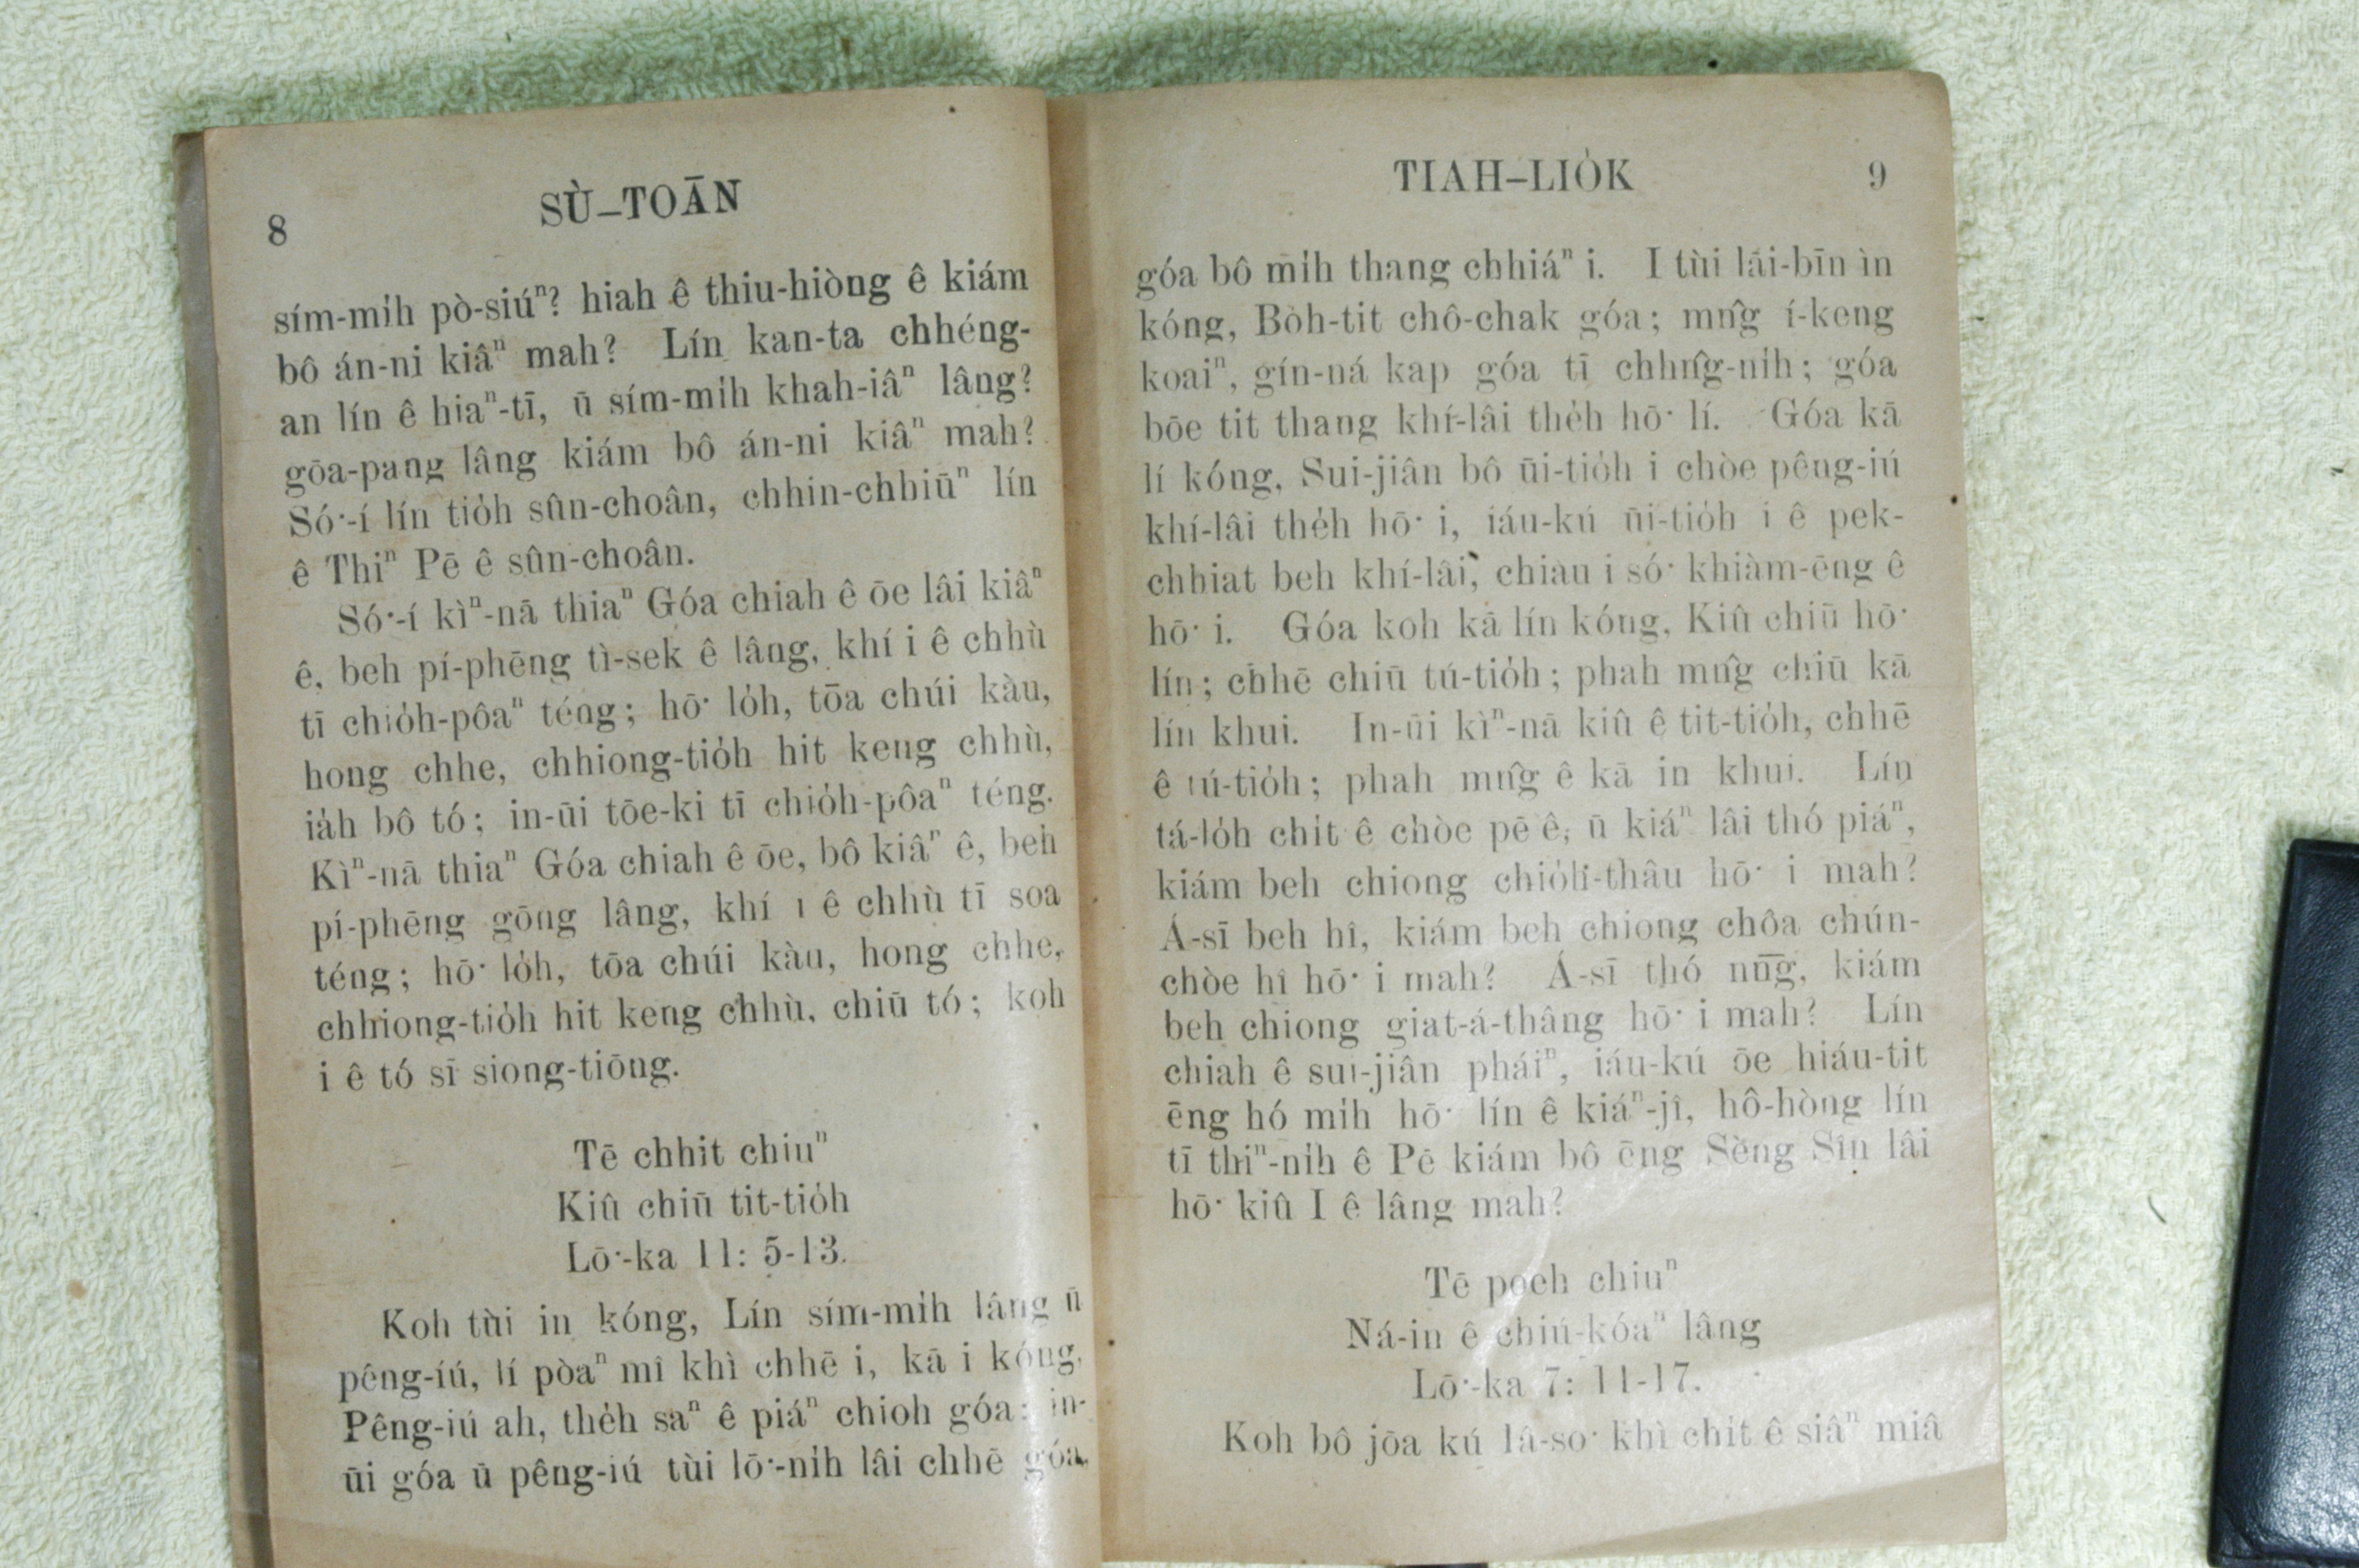 8
SÙ–TOĀN
sím-mi̍h pò-siúⁿ? hiah ê thiu-hiòng ê kiám
bô án-ni kiâⁿ mah? Lín kan-ta chhéng-
an lín ê hiaⁿ-tī, ū sím-mi̍h khah-iâⁿ lâng?
gōa-pang lâng kiám bô án-ni kiâⁿ mah?
Só͘-í lín tio̍h sûn-choân, chhin-chhiūⁿ lín
ê Thiⁿ Pē ê sûn-choân.
Só͘-í kìⁿ-nā thiaⁿ Góa chiah ê ōe lâi kiâⁿ
ê, beh pí-phēng tì-sek ê lâng, khí i ê chhù
tī chio̍h-pôaⁿ téng; hō͘ lo̍h, tōa chúi kàu,
hong chhe, chhiong-tio̍h hit keng chhù,
ia̍h bô tó; in-ūi tōe-ki tī chio̍h-pôaⁿ téng.
Kìⁿ-nā thiaⁿ Góa chiah ê ōe, bô kiâⁿ ê, beh
pí-phēng gōng lâng, khí i ê chhù tī soa
téng; hō͘ lo̍h, tōa chúi kàu, hong chhe,
chhiong-tio̍h hit keng chhù, chiū tó; koh
i ê tó sī siong-tiōng.
Tē chhit chiuⁿ
Kiû chiū tit-tio̍h
Lō͘-ka 11: 5-13.
Koh tùi in kóng, Lín sím-mi̍h lâng ū
pêng-iú, lí pòaⁿ mî khì chhē i, kā i kóng,
Pêng-iú ah, the̍h saⁿ ê piáⁿ chioh góa: in-
ūi góa ū pêng-iú tùi lō͘-ni̍h lâi chhē góa,
TIAH–LIO̍K 9
góa bô mi̍h thang chhiáⁿ i. I tùi lāi-bīn ìn
kóng, Bo̍h-tit chô-chak góa; mn̂g í-keng
koaiⁿ, gín-ná kap góa tī chhn̂g-ni̍h; góa
bōe tit thang khí-lâi the̍h hō͘ lí. Góa kā
lí kóng, Sui-jiân bô ūi-tio̍h i chòe pêng-iú
khí-lâi the̍h hō͘ i, iáu-kú ūi-tio̍h i ê pek-
chhiat beh khí-lâi, chiau i só͘ khiàm-ēng ê
hō͘ i. Góa koh kā lín kóng, Kiû chiū hō͘
lín; chhē chiū tú-tio̍h; phah mn̂g chiū kā
lín khui. In-ūi kìⁿ-nā kiû ê tit-tio̍h, chhē
ê tú-tio̍h; phah mn̂g ê kā in khui. Lín
tá-lo̍h chi̍t ê chòe pē ê, ū kiáⁿ lâi thó piáⁿ,
kiám beh chiong chio̍h-thâu hō͘ i mah?
Á-sī beh hî, kiám beh chiong chôa chún-
chòe hî hō͘ i mah? Á-sī thó nn̄g, kiám
beh chiong giat-á-thâng hō͘ i mah? Lín
chiah ê sui-jiân pháiⁿ, iáu-kú ōe hiáu-tit
ēng hó mi̍h hō͘ lín ê kiáⁿ-jî, hô-hòng lín
tī thiⁿ-ni̍h ê Pē kiám bô ēng Sèng Sîn lâi
hō͘ kiû I ê lâng mah?
Tē poeh chiuⁿ
Ná-in ê chiú-kóaⁿ lâng
Lō͘-ka 7: 11-17.
Koh bô jōa kú Iâ-so͘ khì chi̍t ê siâⁿ miâ